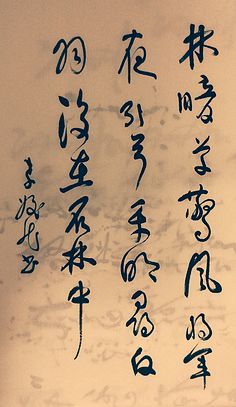 林暗草驚風将军
夜引弓平明尋白
羽没在石林中
李
书